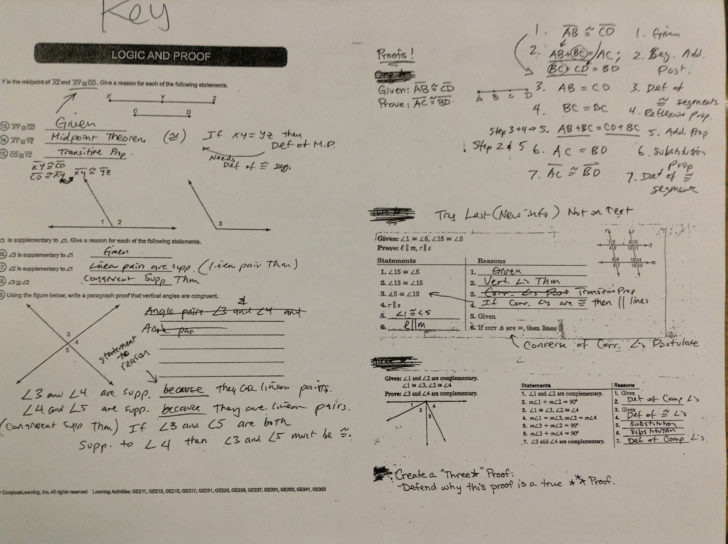 Key
LOGIC AND PROOF
Y is the midpoint of XZ and XY ≅ CD. Give a reason for each of the following statements.
X Y Z
C D
13 XY ≅ CD Given
14 XY ≅ YZ Midpoint Theorem (≅) If XY = YZ then
Def of M.P.
15 CD ≅ YZ Transitive Prop
Needs Def of ≅ seg.
XY ≅ CD
CD ≅ XY XY ≅ YZ
1 2 3
∠3 is supplementary to ∠1. Give a reason for each of the following statements.
∠3 is supplementary to ∠1 Given
∠2 is supplementary to ∠1 Linear pairs are supp. (Linear pair Thm)
Congruent Supp Thm
Using the figure below, write a paragraph proof that vertical angles are congruent.
Angle pairs ∠3 and ∠4 and
3 4 5
statement
to
reason
∠3 and ∠4 are supp. because they are linear pairs.
∠4 and ∠5 are supp. because they are linear pairs.
(congruent Supp Thm) If ∠3 and ∠5 are both
supp. to ∠4 then ∠3 and ∠5 must be ≅.
CompassLearning, Inc. All rights reserved Learning Activities:
Proofs!
Given: AB ≅ CD
Prove: AC ≅ BD
A B C D
1. AB ≅ CD 1. Given
2. AB + BC = AC; 2. Seg. Add.
BC + CD = BD Post.
3. AB = CD 3. Def of
≅ segments
4. BC = BC 4. Reflexive prop.
Step 3+4 ⇒ 5. AB + BC = CD + BC 5. Add Prop
Step 2 & 5 6. AC = BD 6. Substitution
Prop
7. AC ≅ BD 7. Def of ≅
segment
Try Last (New info) Not on Test
Given: ∠1 ≅ ∠5, ∠15 ≅ ∠5
Prove: ℓ ∥ m, r ∥ s
Statements Reasons
1. ∠15 ≅ ∠5 1. Given
2. ∠13 ≅ ∠15 2. Vert. ∠s Thm
3. ∠5 ≅ ∠13 3. Corr. ∠s Post Transitive Prop
4. r ∥ s 4. If Corr ∠s are ≅ then ∥ lines
5. ∠1 ≅ ∠5 5. Given
6. ℓ ∥ m 6. If corr ∠s are ≅, then lines ∥
Converse of Corr. ∠s Postulate
Given: ∠1 and ∠2 are complementary.
∠1 ≅ ∠3, ∠2 ≅ ∠4
Prove: ∠3 and ∠4 are complementary.
Statements Reasons
1. ∠1 and ∠2 are complementary. 1. Given
2. m∠1 + m∠2 = 90° 2. Def of Comp ∠s
3. ∠1 ≅ ∠3, ∠2 ≅ ∠4 3. Given
4. m∠1 = m∠3, m∠2 = m∠4 4. Def of ≅ ∠s
5. m∠3 + m∠2 = 90° 5. Substitution
6. m∠3 + m∠4 = 90° 6. Substitution
7. ∠3 and ∠4 are complementary. 7. Def of Comp ∠s
Create a "Three*" Proof:
-Defend why this proof is a true *** Proof.